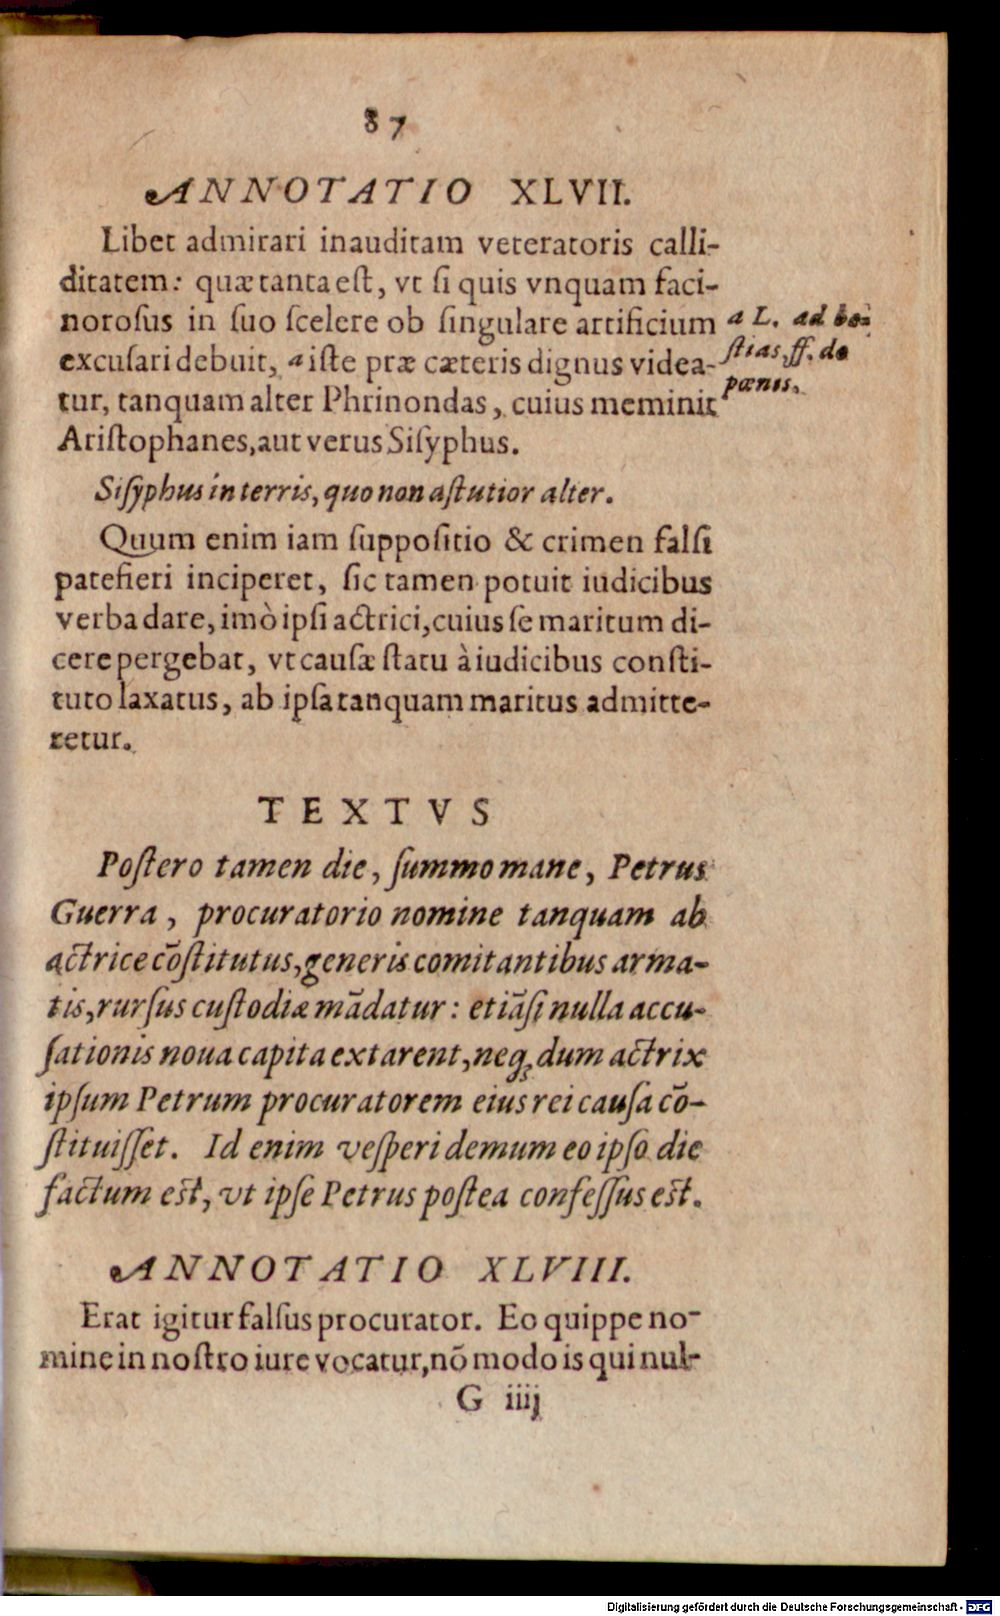 87
ANNOTATIO XLVII.
Libet admirari inauditam veteratoris calli-
ditatem: quæ tanta est, vt si quis vnquam faci-
norosus in suo scelere ob singulare artificium
excusari debuit, a iste præ cæteris dignus videa-
tur, tanquam alter Phrinondas, cuius meminit
Aristophanes, aut verus Sisyphus.
a L. ad be-
stias, ff. de
pœnis.
Sisyphus in terris, quo non astutior alter.
Quum enim iam suppositio & crimen falsi
patefieri inciperet, sic tamen potuit iudicibus
verba dare, imò ipsi actrici, cuius se maritum di-
cere pergebat, vt causæ statu à iudicibus consti-
tuto laxatus, ab ipsa tanquam maritus admitte-
retur.
TEXTVS
Postero tamen die, summo mane, Petrus
Guerra, procuratorio nomine tanquam ab
actrice cōstitutus, generis comitantibus arma-
tis, rursus custodiæ mādatur: etiāsi nulla accu-
sationis noua capita extarent, neq; dum actrix
ipsum Petrum procuratorem eius rei causa cō-
stituisset. Id enim vesperi demum eo ipso die
factum est, vt ipse Petrus postea confessus est.
ANNOTATIO XLVIII.
Erat igitur falsus procurator. Eo quippe no-
mine in nostro iure vocatur, nō modo is qui nul-
G iiij
Digitalisierung gefördert durch die Deutsche Forschungsgemeinschaft - DFG